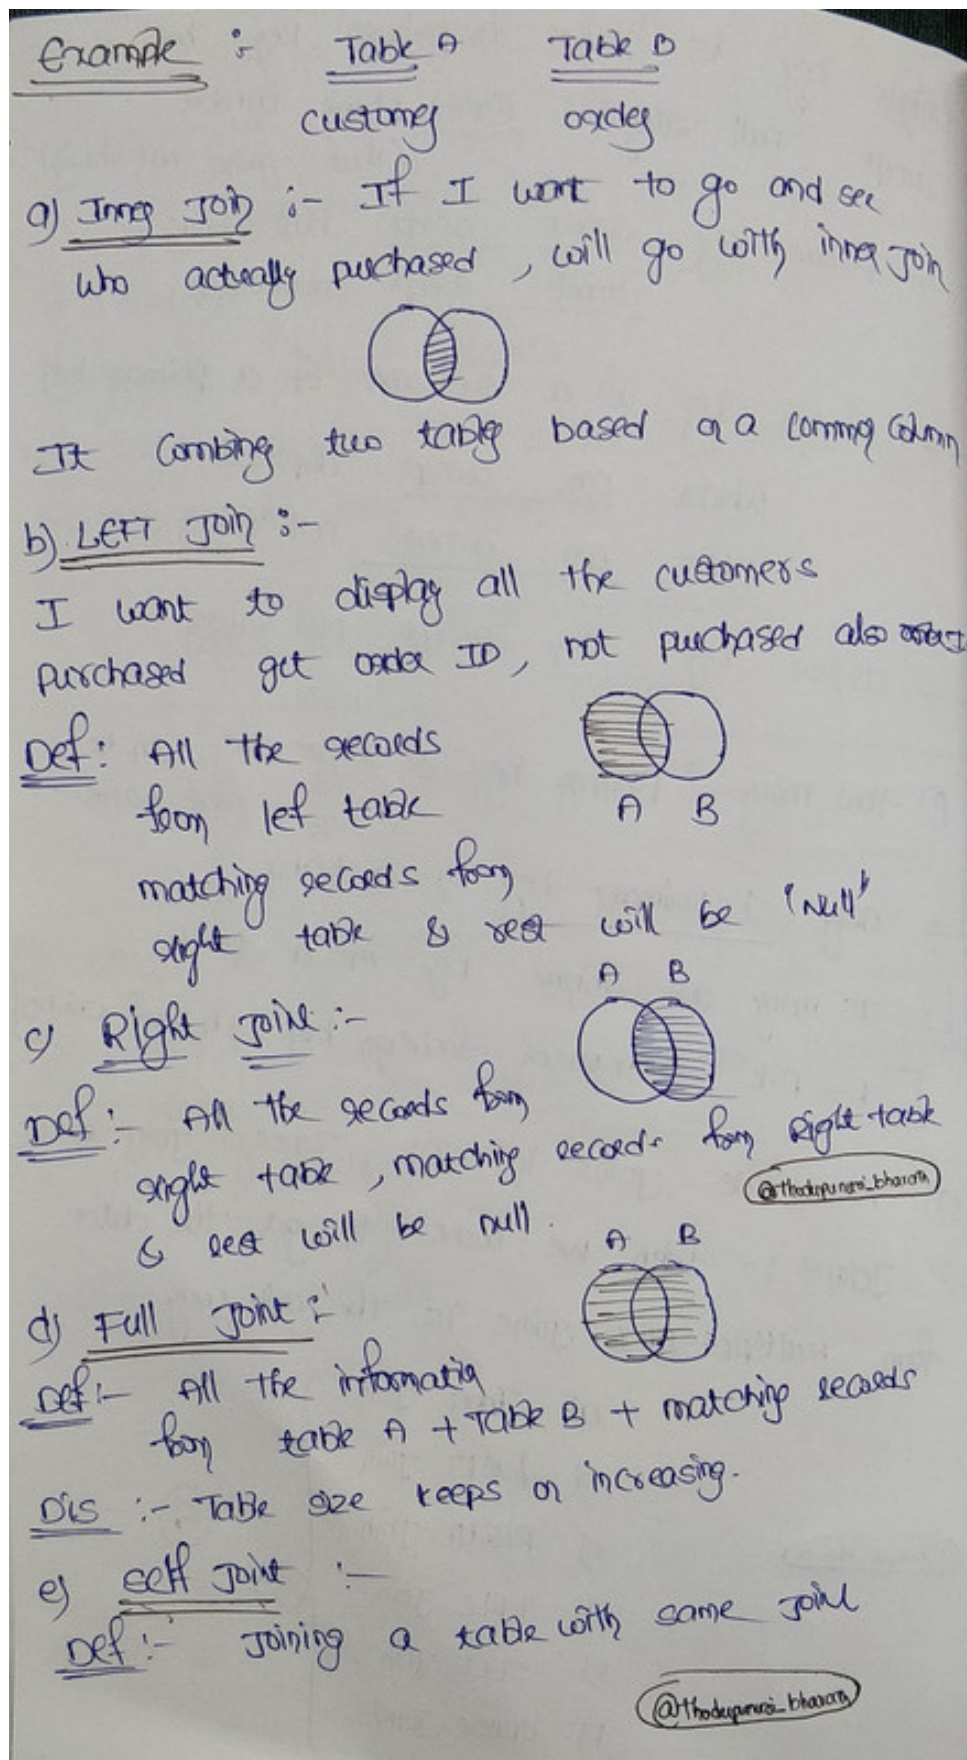 Example :-
Table A Table B
customer order
a) Inner Join :- If I want to go and see
who actually purchased, will go with inner join
It Combines two tables based on a common Column
b) LEFT Join :-
I want to display all the customers
purchased get order ID, not purchased also
Def: All the records
from lef table
A B
matching records from
right table & rest will be 'Null'
A B
c) Right Joint :-
Def :- All the records from
right table, matching records from Right table
@thodupunuri_bharath
& rest will be null.
A B
d) Full Joint :-
Def :- All the information
from table A + Table B + matching records
Dis :- Table size keeps on increasing.
e) Self Joint :-
Def :- Joining a table with same Joint
@thodupunuri_bharath